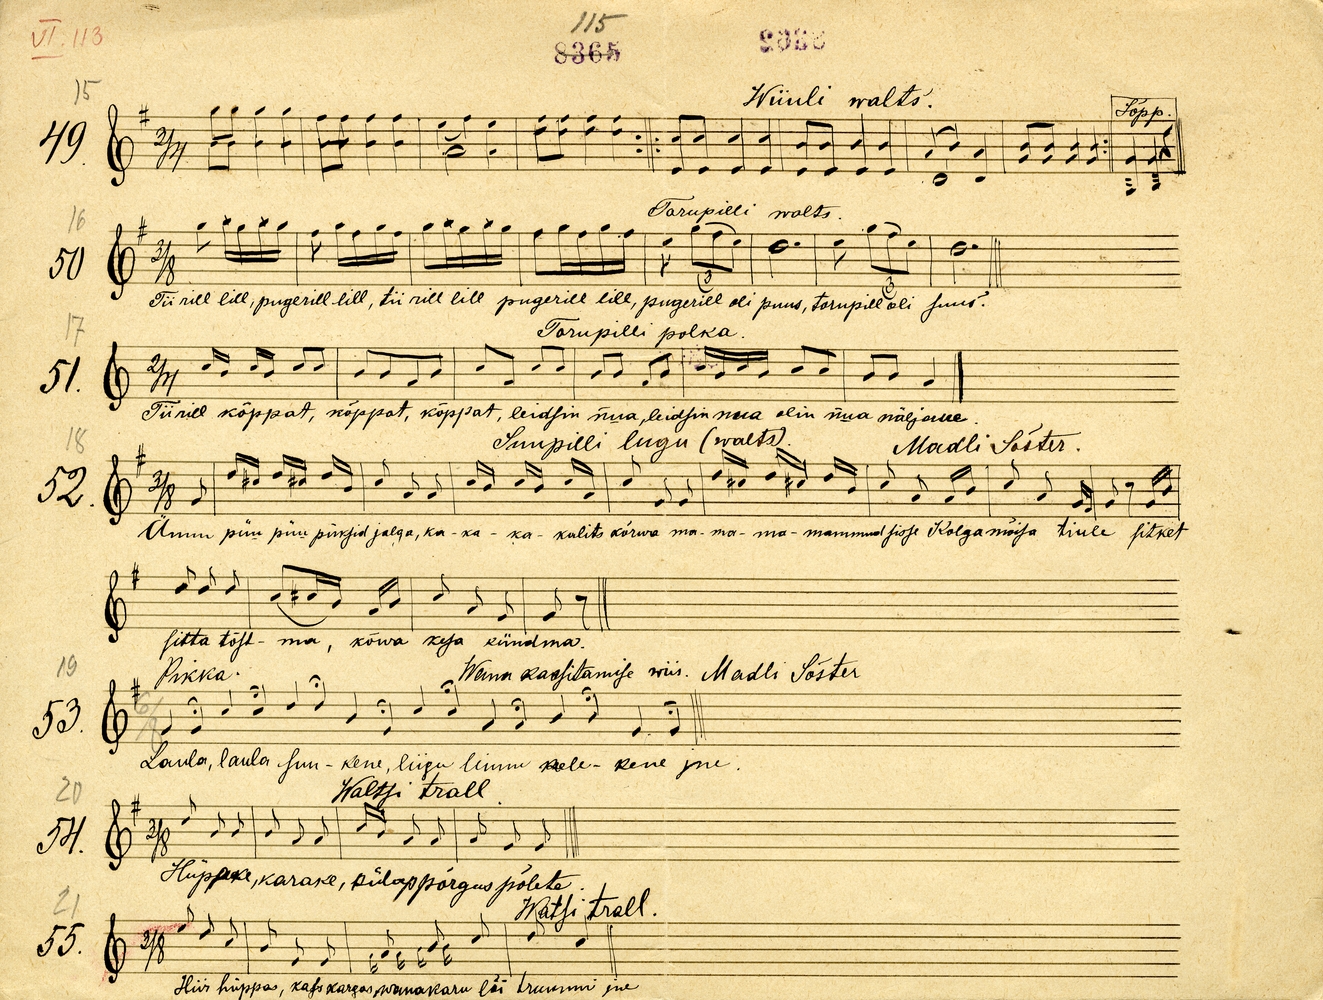 VI. 113
115
8365
15
Wiiuli walts.
Lõpp.
49.
3/4
16
Torupilli walts.
50
3/8
3
3
Tii rill lill, pugerill lill, tii rill lill pugerill lill, pugerill oli puus, torupill oli suus.
17
Torupilli polka.
51.
2/4
Tiirill kõppat, kõppat, kõppat, leidsin nua, leidsin nua olin nua näljane.
18
Suupilli lugu (walts). Madli Sõster.
52.
3/8
Ämm püü püü püksid jalga, ka-ka-ka-kalits kõrwa ma-ma-ma-mammud sisse Kolga mõisa tiule sitket
sitta tõst-ma, kõwa kesa kündma.
19
Pikka. Wana kaasitamise wiis. Madli Sõster
53.
6/8
Laula, laula suu-kene, liigu linnu kele-kene jne.
20
Waltsi trall
54.
3/8
Hüppake, karake, põrgus põlete.
21
Waltsi trall.
55.
3/8
Hiir hüppas, kass kargas, wanakaru lõi trummi jne